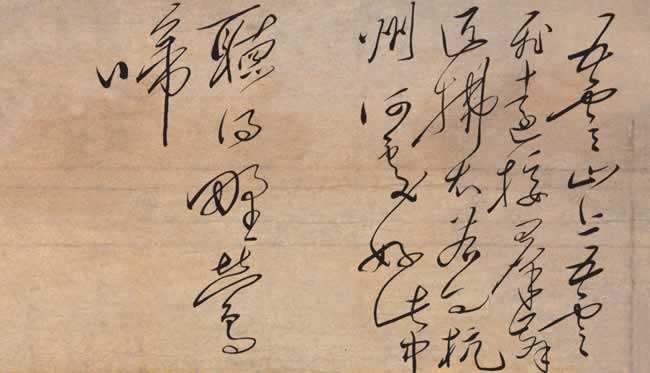 五雲山上五雲
飛遠接羣峯
近拂堤若问杭
州何處好此中
聽得野鶯
啼